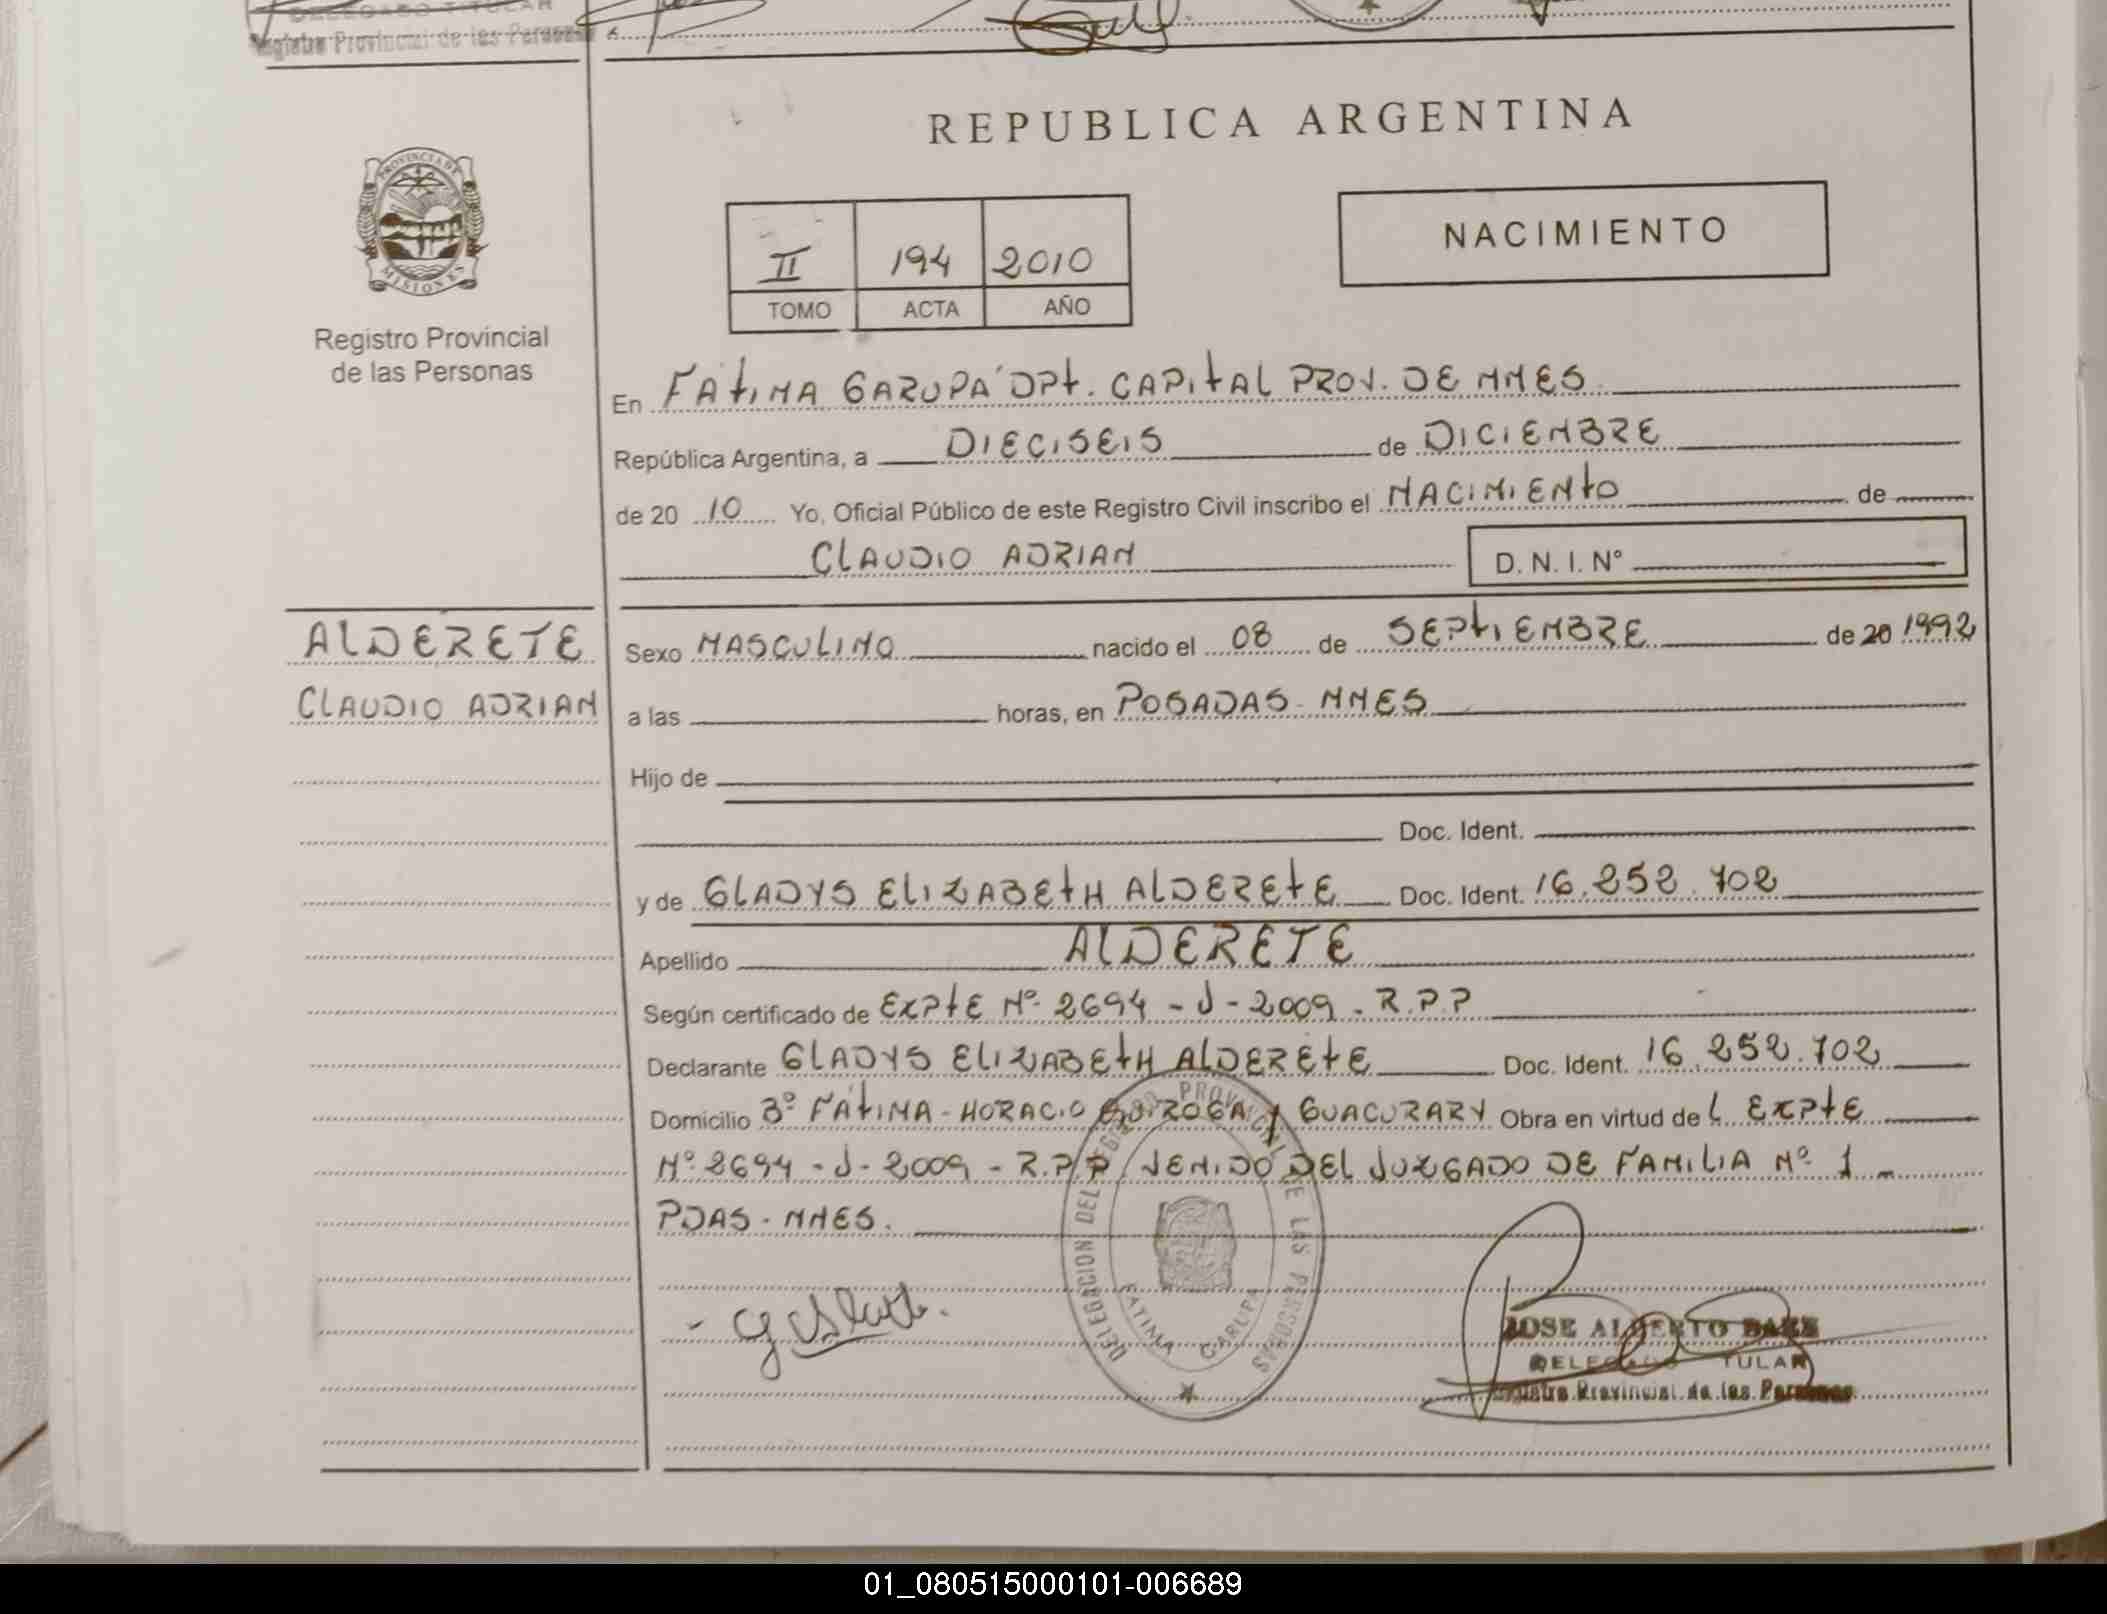 DELEGADO TITULAR
Registro Provincial de las Personas
REPUBLICA ARGENTINA
PROVINCIA DE
MISIONES
Registro Provincial
de las Personas
II 194 2010
TOMO ACTA AÑO
NACIMIENTO
En FATIMA GARUPA DPt. CAPITAL PROV. DE MNES
República Argentina, a DIECISEIS de DICIEMBRE
de 20 10 Yo, Oficial Público de este Registro Civil inscribo el NACIMIENTO de
CLAUDIO ADRIAN D. N. I. N°
ALDERETE
CLAUDIO ADRIAN
Sexo MASCULINO nacido el 08 de SEPTIEMBRE de 20 1992
a las horas, en POSADAS - MNES
Hijo de
Doc. Ident.
y de GLADYS ELIZABETH ALDERETE Doc. Ident. 16.252.702
Apellido ALDERETE
Según certificado de EXPTE Nº 2694 - J - 2009 - R.P.P
Declarante GLADYS ELIZABETH ALDERETE Doc. Ident. 16.252.702
Domicilio Bº FATIMA - HORACIO QUIROGA Y GUACURARY Obra en virtud de L EXPTE
Nº 2694 - J - 2009 - R.P.P. VENIDO DEL JUZGADO DE FAMILIA Nº 1 -
PDAS - MNES.
DELEGACION DEL REGISTRO PROVINCIAL DE LAS PERSONAS
FATIMA GARUPA
JOSE ALBERTO BAEZ
DELEGADO TITULAR
Registro Provincial de las Personas
01_080515000101-006689